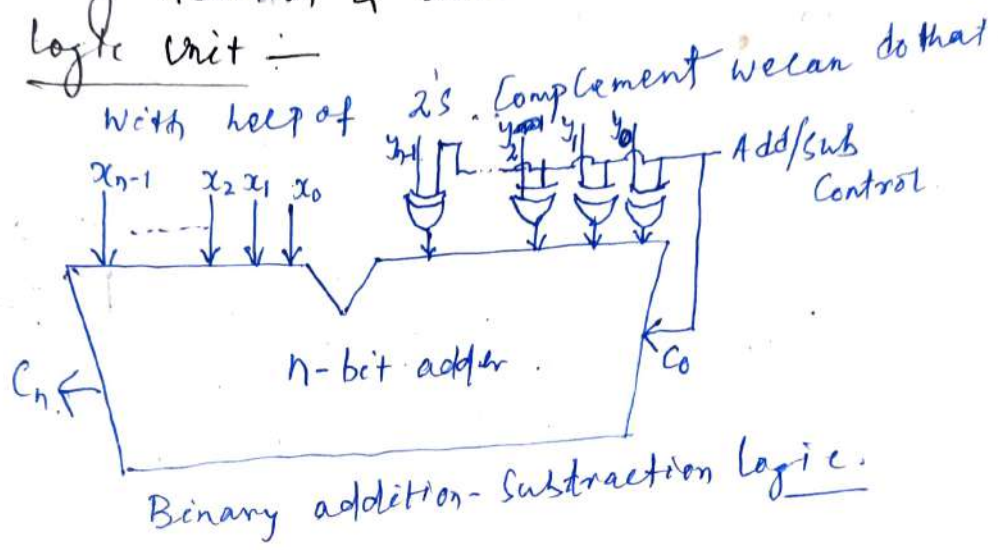 Logic unit :-
With help of 2's. Complement we can do that
yn-1 y2 y1 y0 Add/Sub
Control
xn-1 ...... x2 x1 x0
n-bit adder.
Cn
C0
Binary addition - Subtraction Logic.